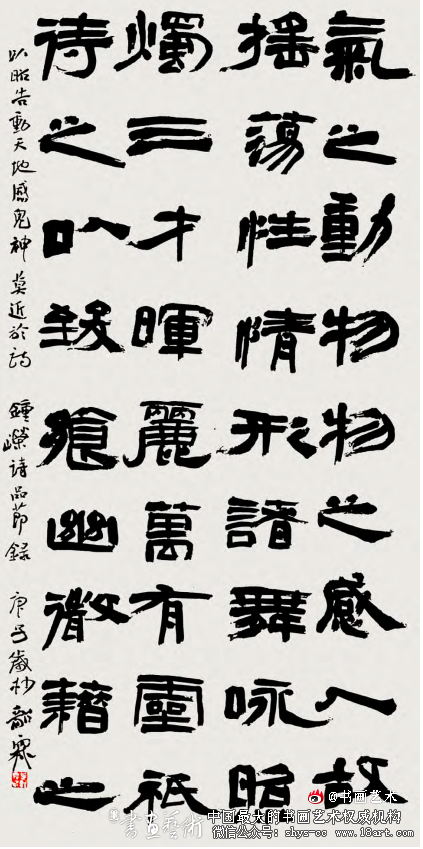 氣之動物物之感人故
揺蕩性情形諸舞咏照
燭三才暉麗萬有靈祇
待之以致饗幽微藉之
以昭告動天地感鬼神莫近於詩 鍾嶸詩品節錄 庚子歲杪
@书画艺术
書畫藝術
中国最大的书画艺术权威机构
微信公众号：shys-cc www.18art.com